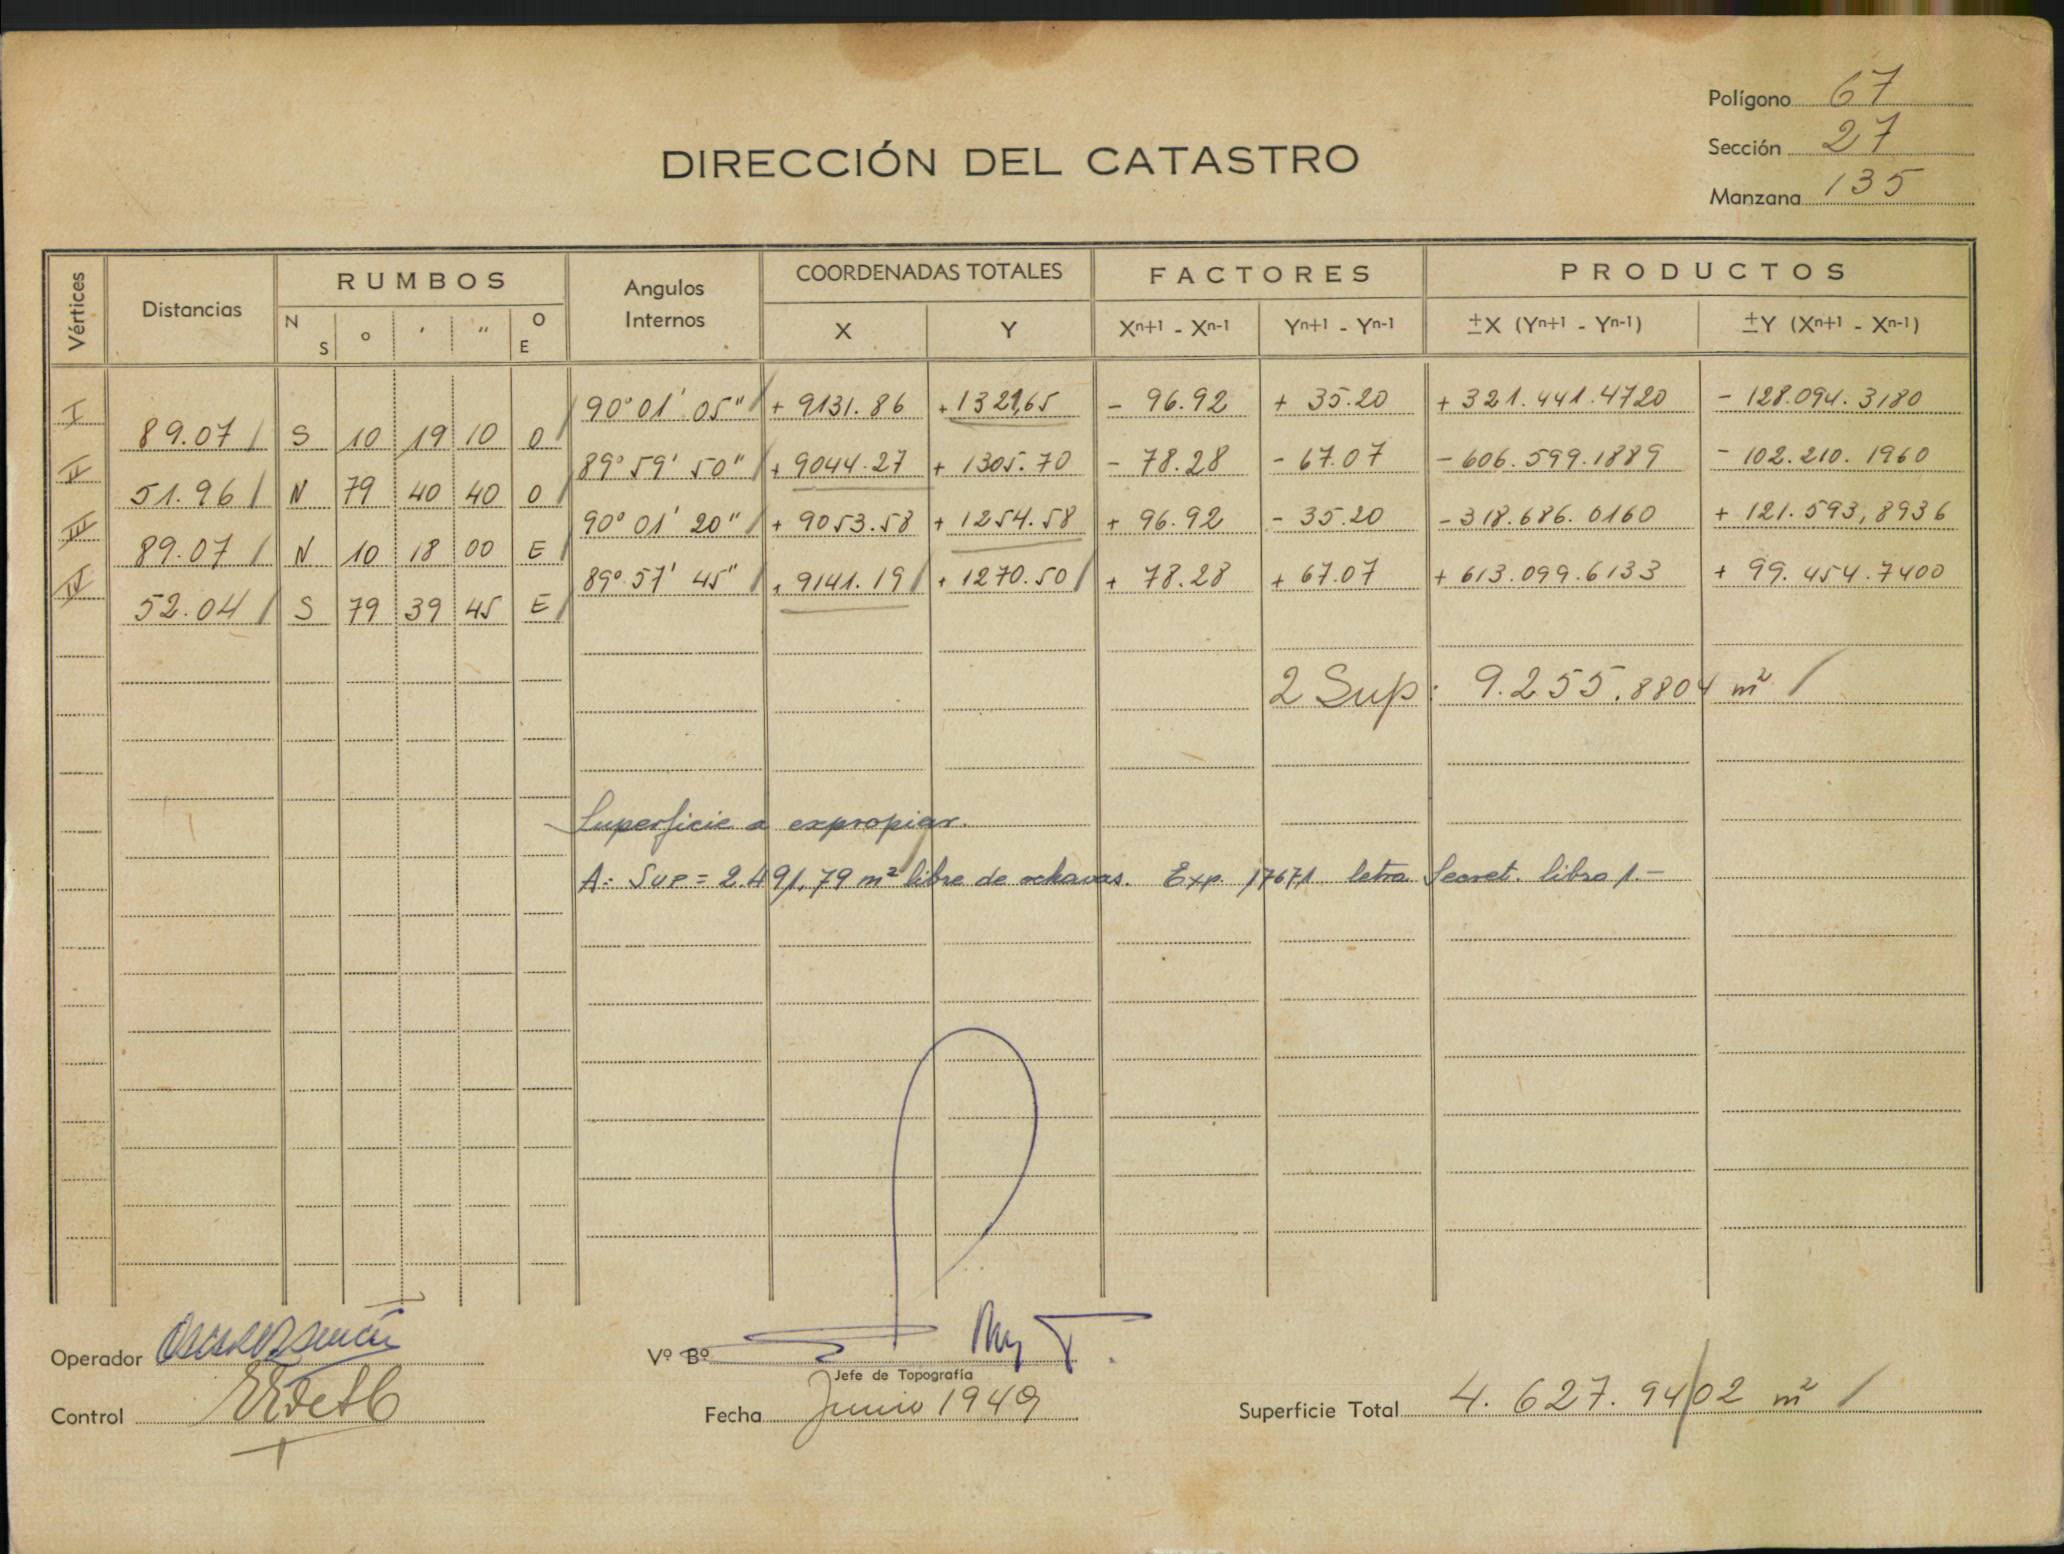 Polígono 67
Sección 27
Manzana 135
DIRECCIÓN DEL CATASTRO
Vértices Distancias RUMBOS Angulos Internos COORDENADAS TOTALES FACTORES PRODUCTOS
N S ° ' " O E X Y Xn+1 - Xn-1 Yn+1 - Yn-1 ±X (Yn+1 - Yn-1) ±Y (Xn+1 - Xn-1)
I 90° 01' 05" + 9131.86 + 1321,65 - 96.92 + 35.20 + 321.441.4720 - 128.094.3180
89.07 S 10 19 10 O
II 89° 59' 50" + 9044.27 + 1305.70 - 78.28 - 67.07 - 606.599.1889 - 102.210.1960
51.96 N 79 40 40 O
III 90° 01' 20" + 9053.58 + 1254.58 + 96.92 - 35.20 - 318.686.0160 + 121.593,8936
89.07 N 10 18 00 E
IV 89° 57' 45" + 9141.19 + 1270.50 + 78.28 + 67.07 + 613.099.6133 + 99.454.7400
52.04 S 79 39 45 E
2 Sup: 9.255.8804 m²
Superficie a expropiar.
A: Sup = 2.491,79 m² libre de ochavas. Exp. 17671 letra Secret. libro 1.-
Operador
Vº Bº
Jefe de Topografía
Control
Fecha Junio 1949
Superficie Total 4.627.94/02 m²